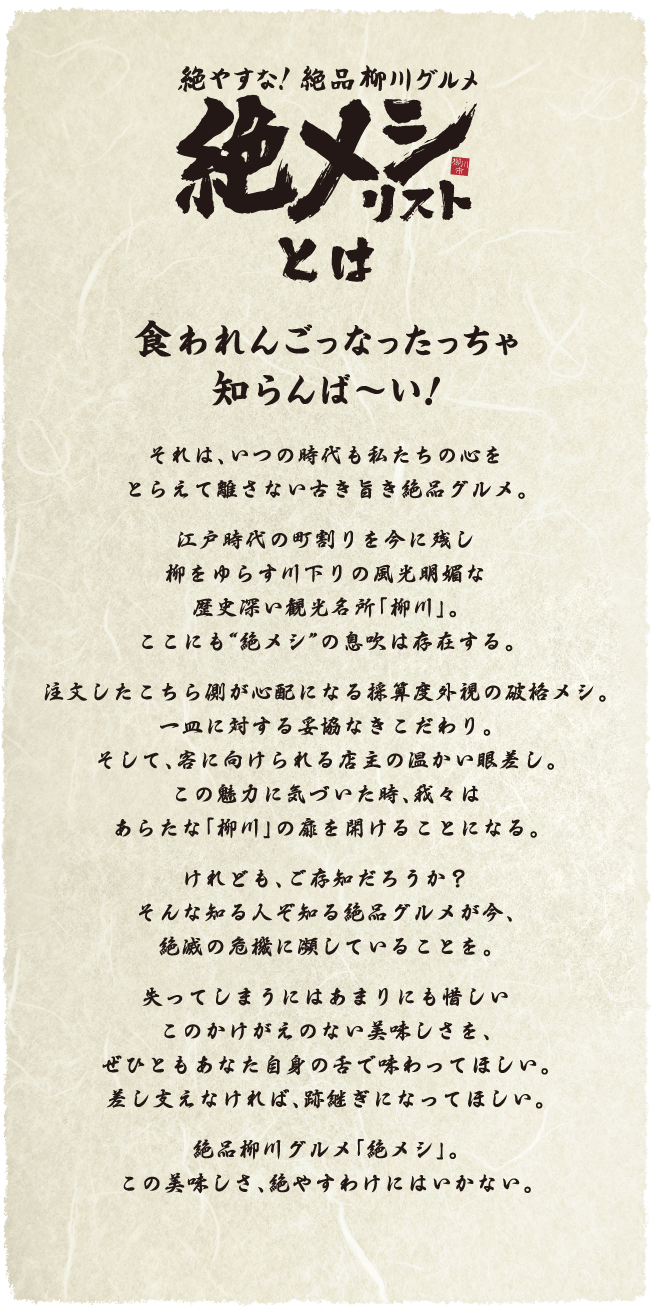 絶やすな！ 絶品柳川グルメ
絶メシ
柳川市
リスト
とは
食われんごっなったっちゃ
知らんば〜い！
それは、いつの時代も私たちの心を
とらえて離さない古き旨き絶品グルメ。
江戸時代の町割りを今に残し
柳をゆらす川下りの風光明媚な
歴史深い観光名所「柳川」。
ここにも“絶メシ”の息吹は存在する。
注文したこちら側が心配になる採算度外視の破格メシ。
一皿に対する妥協なきこだわり。
そして、客に向けられる店主の温かい眼差し。
この魅力に気づいた時、我々は
あらたな「柳川」の扉を開けることになる。
けれども、ご存知だろうか？
そんな知る人ぞ知る絶品グルメが今、
絶滅の危機に瀕していることを。
失ってしまうにはあまりにも惜しい
このかけがえのない美味しさを、
ぜひともあなた自身の舌で味わってほしい。
差し支えなければ、跡継ぎになってほしい。
絶品柳川グルメ「絶メシ」。
この美味しさ、絶やすわけにはいかない。